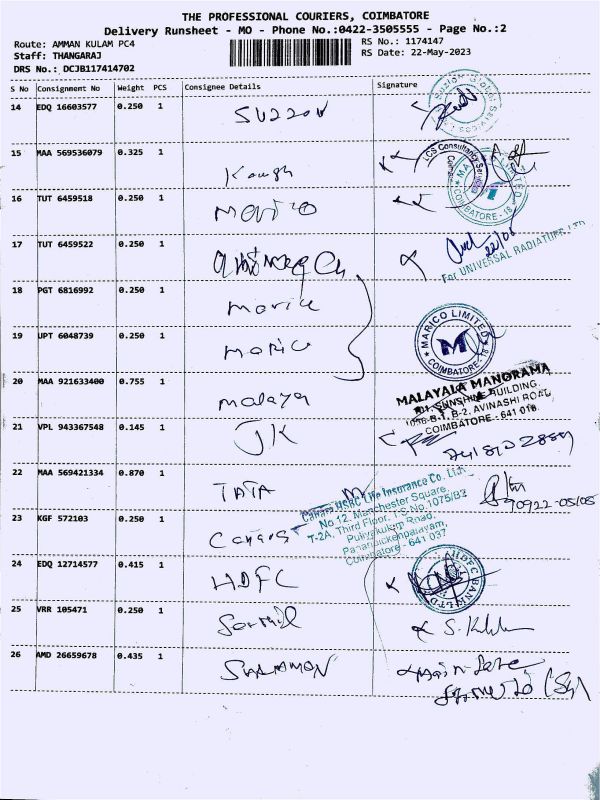 THE PROFESSIONAL COURIERS, COIMBATORE
Delivery Runsheet - MO - Phone No.:0422-3505555 - Page No.:2
Route: AMMAN KULAM PC4
RS No.: 1174147
Staff: THANGARAJ
RS Date: 22-May-2023
DRS No.: DCJB117414702
S No Consignment No Weight PCS Consignee Details Signature
14 EDQ 16603577 0.250 1 SUZZON
15 MAA 569536079 0.325 1
LCS Consultancy Services
16 TUT 6459518 0.250 1 Marico
LIMITED
COIMBATORE - 18
17 TUT 6459522 0.250 1
22/05
For UNIVERSAL RADIATORS LTD
18 PGT 6816992 0.250 1 Marico
19 UPT 6048739 0.250 1 Marico
MARICO LIMITED
M
COIMBATORE - 18
20 MAA 921633400 0.755 1 malaya
MALAYALA MANORAMA
101, SUNSHINE BUILDING
1056-B-1, B-2, AVINASHI ROAD,
COIMBATORE - 641 018.
21 VPL 943367548 0.145 1 JK
22 MAA 569421334 0.870 1 TATA
Canara HSBC Life Insurance Co. Ltd.
No 12, Manchester Square,
T-2A, Third Floor, T.S No.1075/B2
Puliyakulam Road,
Papanaickenpalayam,
Coimbatore - 641 037
23 KGF 572103 0.250 1 Canara
24 EDQ 12714577 0.415 1 HDFC
HDFC BANK LTD
25 VRR 105471 0.250 1
26 AMD 26659678 0.435 1